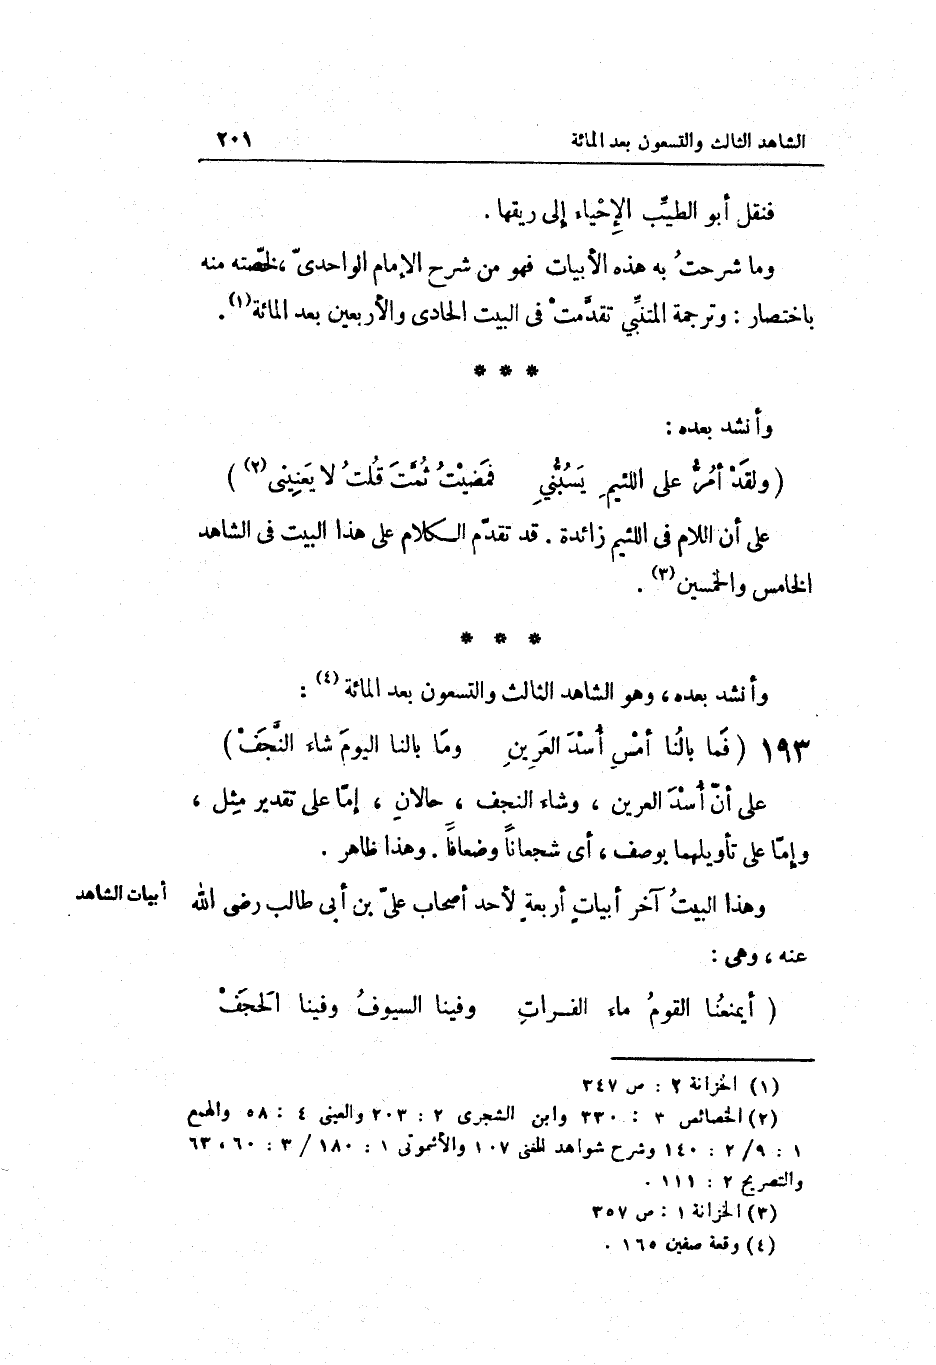 الشاهد الثالث والتسعون بعد المائة ٢٠١
فنقل أبو الطيِّب الإِحْياء إلى ريقها .
وما شرحتُ به هذه الأبيات فهو من شرح الإمام الواحدىّ ، لخّصته منه
باختصار : وترجمة المتنبِّي تقدَّمتْ فى البيت الحادى والأربعين بعد المائة(١) .
* * *
وأنشد بعده :
( ولقَدْ أمُرُّ على اللئيمِ يَسُبُّنِي فمَضيْتُ ثُمَّتَ قُلتُ لا يَعْنِينِى(٢) )
على أن اللام فى اللئيم زائدة . قد تقدّم الكلام على هذا البيت فى الشاهد
الخامس والخمسين(٣) .
* * *
وأنشد بعده ، وهو الشاهد الثالث والتسعون بعد المائة(٤) :
١٩٣ ( فَما بالُنا أمْسِ أُسْدَ العَرِينِ ومَا بالنا اليومَ شاء النَّجَفْ )
على أنّ أُسْدَ العرين ، وشاء النجف ، حالانِ ، إمّا على تقدير مِثل ،
وإمّا على تأويلهما بوصف ، أى شجعاناً وضعافاً . وهذا ظاهر .
وهذا البيتُ آخر أبياتٍ أربعةٍ لأحد أصحاب علىّ بن أبى طالب رضى الله
أبيات الشاهد
عنه ، وهى :
( أيمنعُنا القومُ ماء الفراتِ وفينا السيوفُ وفينا الحجَفْ
(١) الخزانة ٢ : ص ٣٤٧
(٢) الخصائص ٣ : ٣٣٠ وابن الشجرى ٢ : ٢٠٣ والعينى ٤ : ٥٨ والهمع
١ : ٩ / ٢ : ١٤٠ وشرح شواهد المغنى ١٠٧ والأشمونى ١ : ١٨٠ / ٣ : ٦٠ ، ٦٣
والتصريح ٢ : ١١١ .
(٣) الخزانة ١ : ص ٣٥٧
(٤) وقعة صفين ١٦٥ .